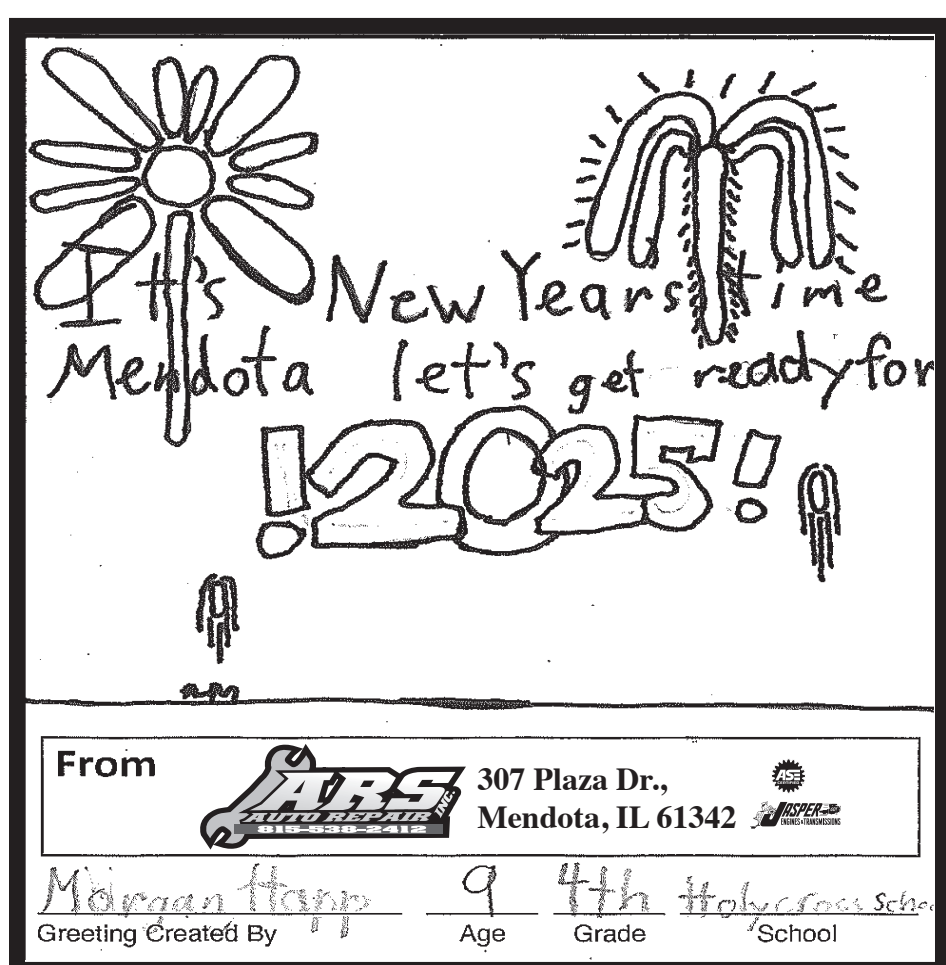 It's New Years time
Mendota let's get ready for
!2025!
From
ARS INC.
AUTO REPAIR
815-538-2412
307 Plaza Dr.,
Mendota, IL 61342
ASE
JASPER
ENGINES & TRANSMISSIONS
Morgan Happ 9 4th Holycross School
Greeting Created By Age Grade School